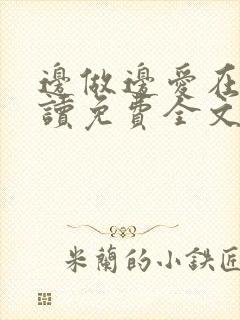 邊做邊愛在
讀免費全文
米蘭的小鉄匠